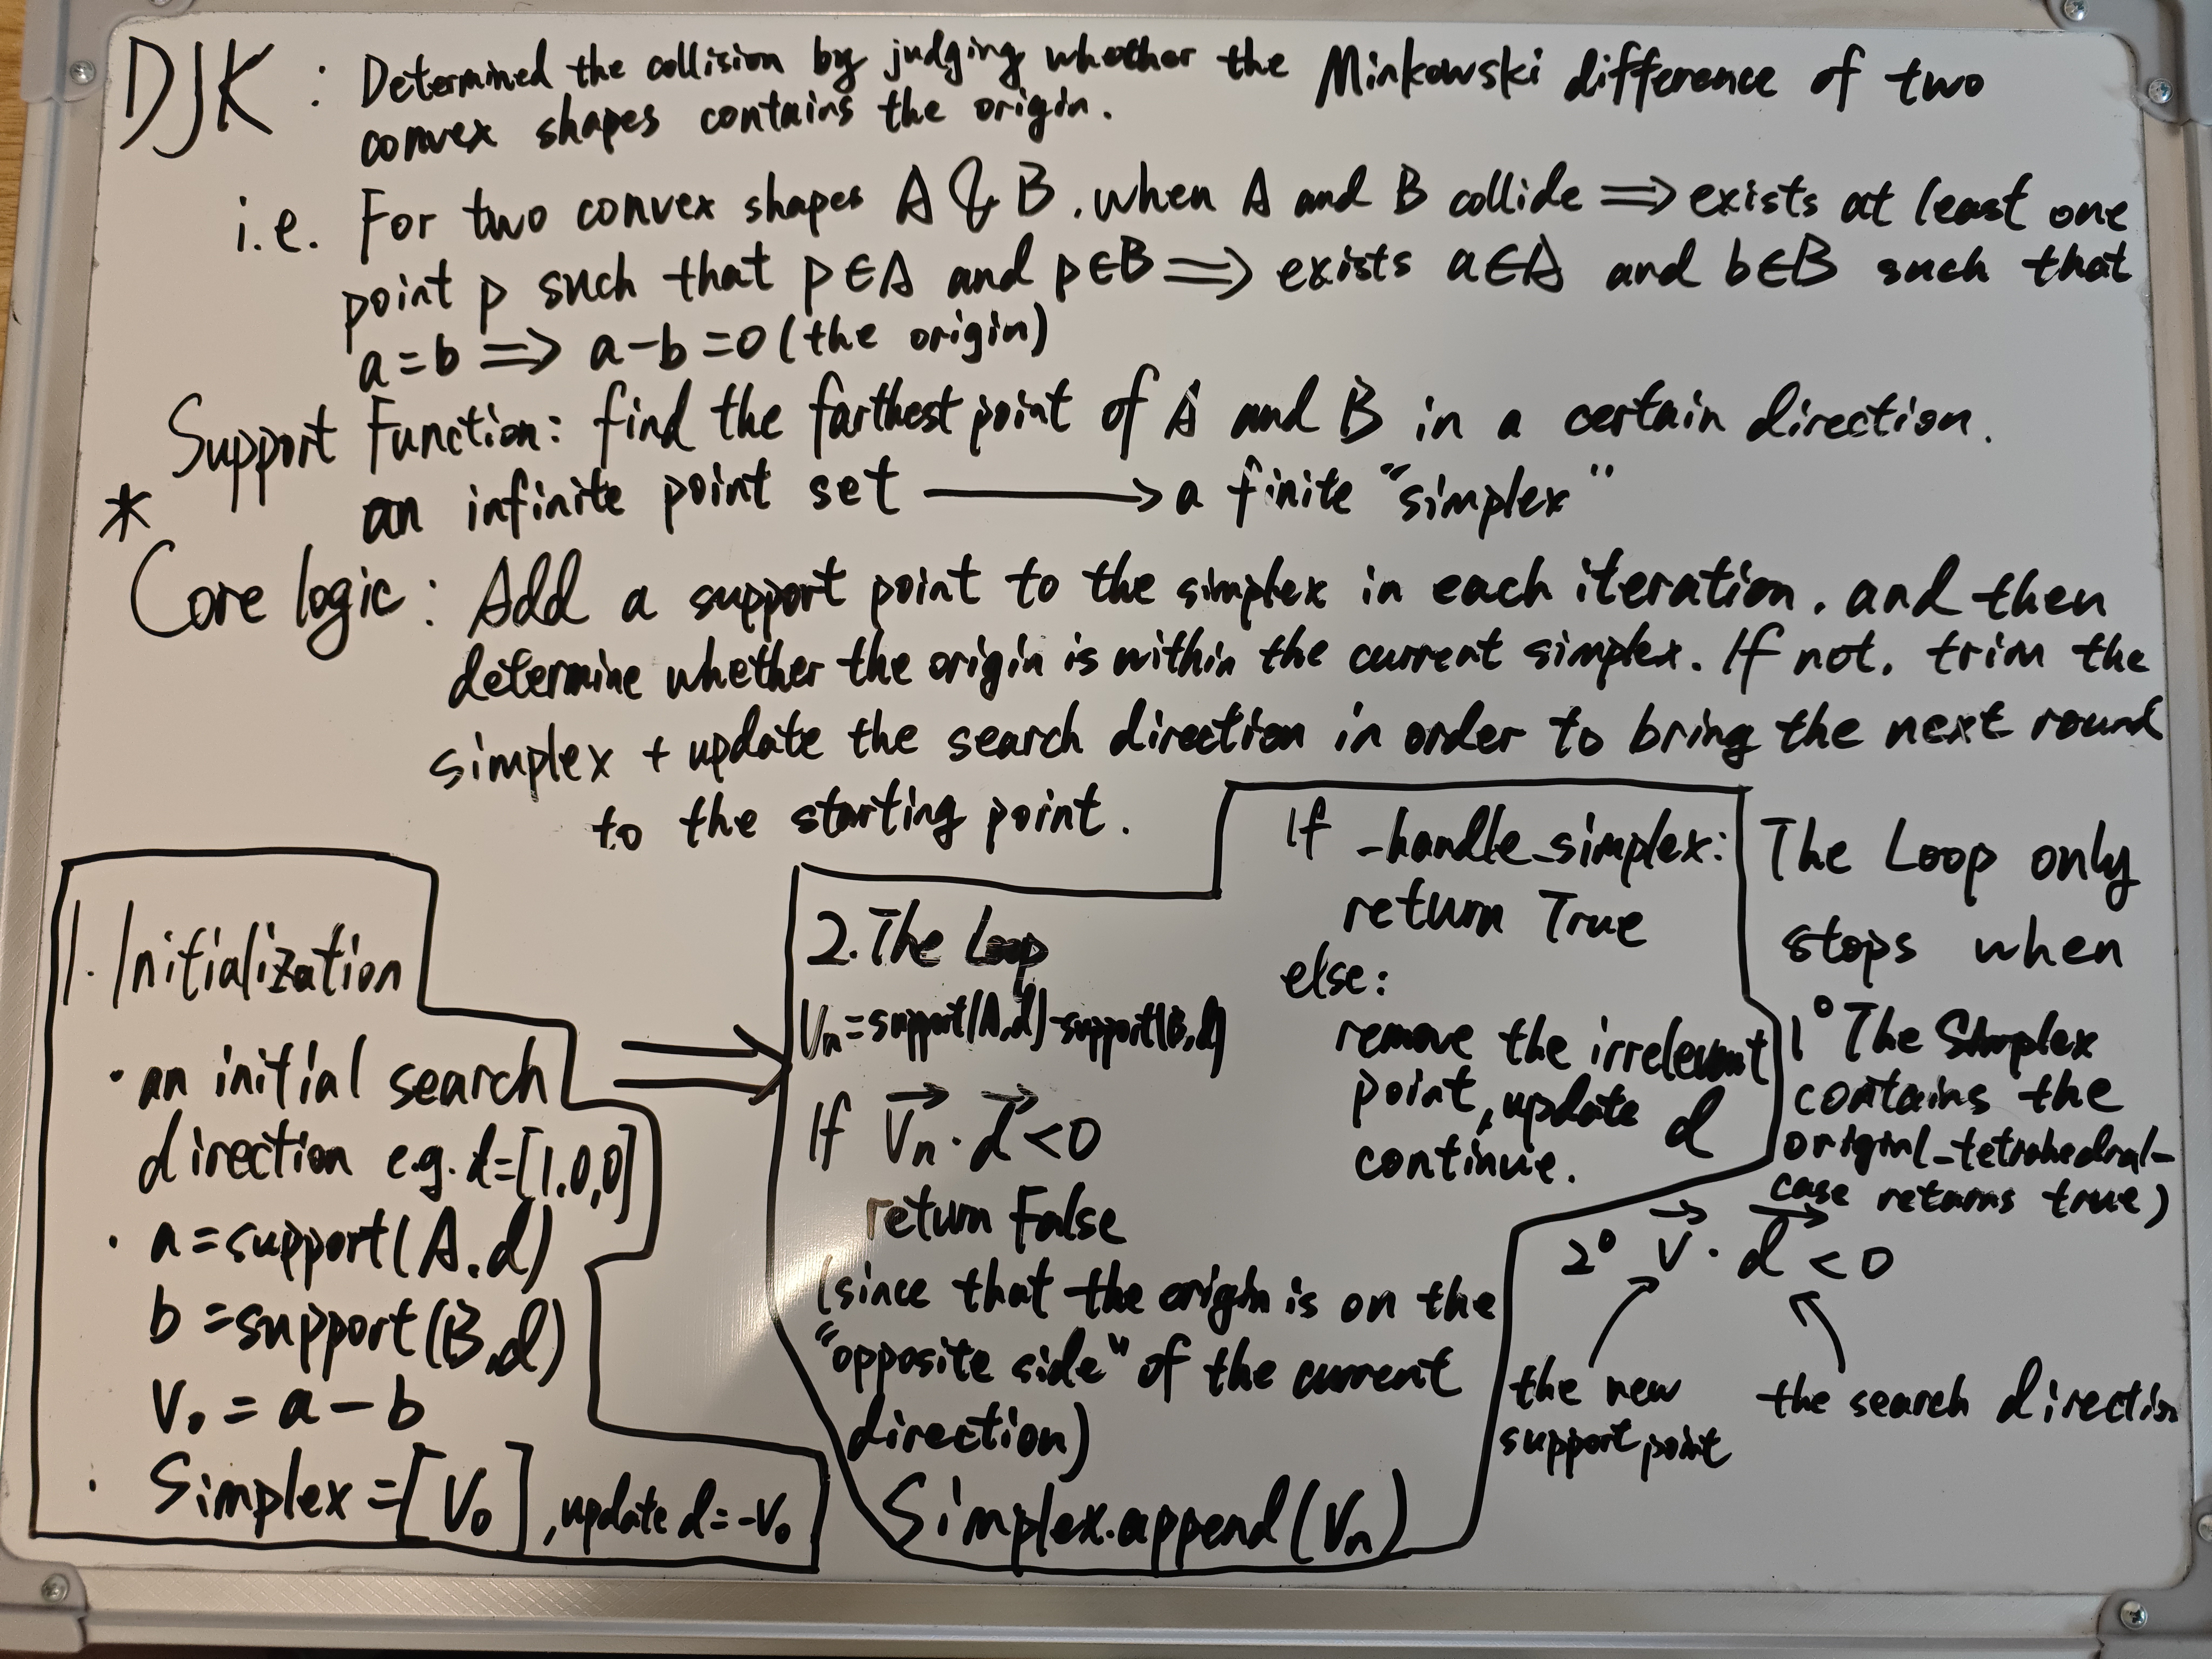 DJK : Determined the collision by judging whether the Minkowski difference of two
convex shapes contains the origin.
i.e. For two convex shapes A & B, when A and B collide ⟹ exists at least one
point p such that p∈A and p∈B ⟹ exists a∈A and b∈B such that
a=b ⟹ a-b=0 (the origin)
Support Function: find the farthest point of A and B in a certain direction.
* an infinite point set ⟶ a finite "simplex"
Core logic: Add a support point to the simplex in each iteration, and then
determine whether the origin is within the current simplex. If not, trim the
simplex + update the search direction in order to bring the next round
to the starting point.
1. Initialization
· an initial search
direction e.g. d=[1,0,0]
· a=support(A,d)
b=support(B,d)
V₀ = a-b
· Simplex=[V₀], update d=-V₀
2. The Loop
Vn=support(A,d)-support(B,d)
If Vn·d<0
return False
(since that the origin is on the
"opposite side" of the current
direction)
Simplex.append(Vn)
If _handle_simplex:
return True
else:
remove the irrelevant
point, update d
continue.
The Loop only
stops when
1° The Simplex
contains the
origin(_tetrahedral_
case returns true)
2° V·d<0
the new
support point
the search direction